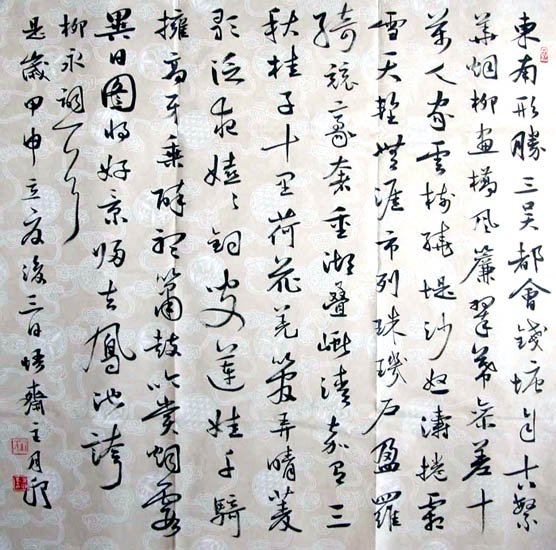 東南形勝三吳都會錢塘自古繁
華烟柳畫橋風簾翠幕參差十
萬人家雲樹繞堤沙怒濤捲霜
雪天塹無涯市列珠璣戶盈羅
綺競豪奢重湖疊巘清嘉有三
秋桂子十里荷花羌管弄晴菱
歌泛夜嬉〻釣叟蓮娃千騎
擁高牙乘醉聽簫鼓吟賞烟霞
異日圖將好景歸去鳳池誇
柳永詞
是歲甲申立夏後三日悟齋主